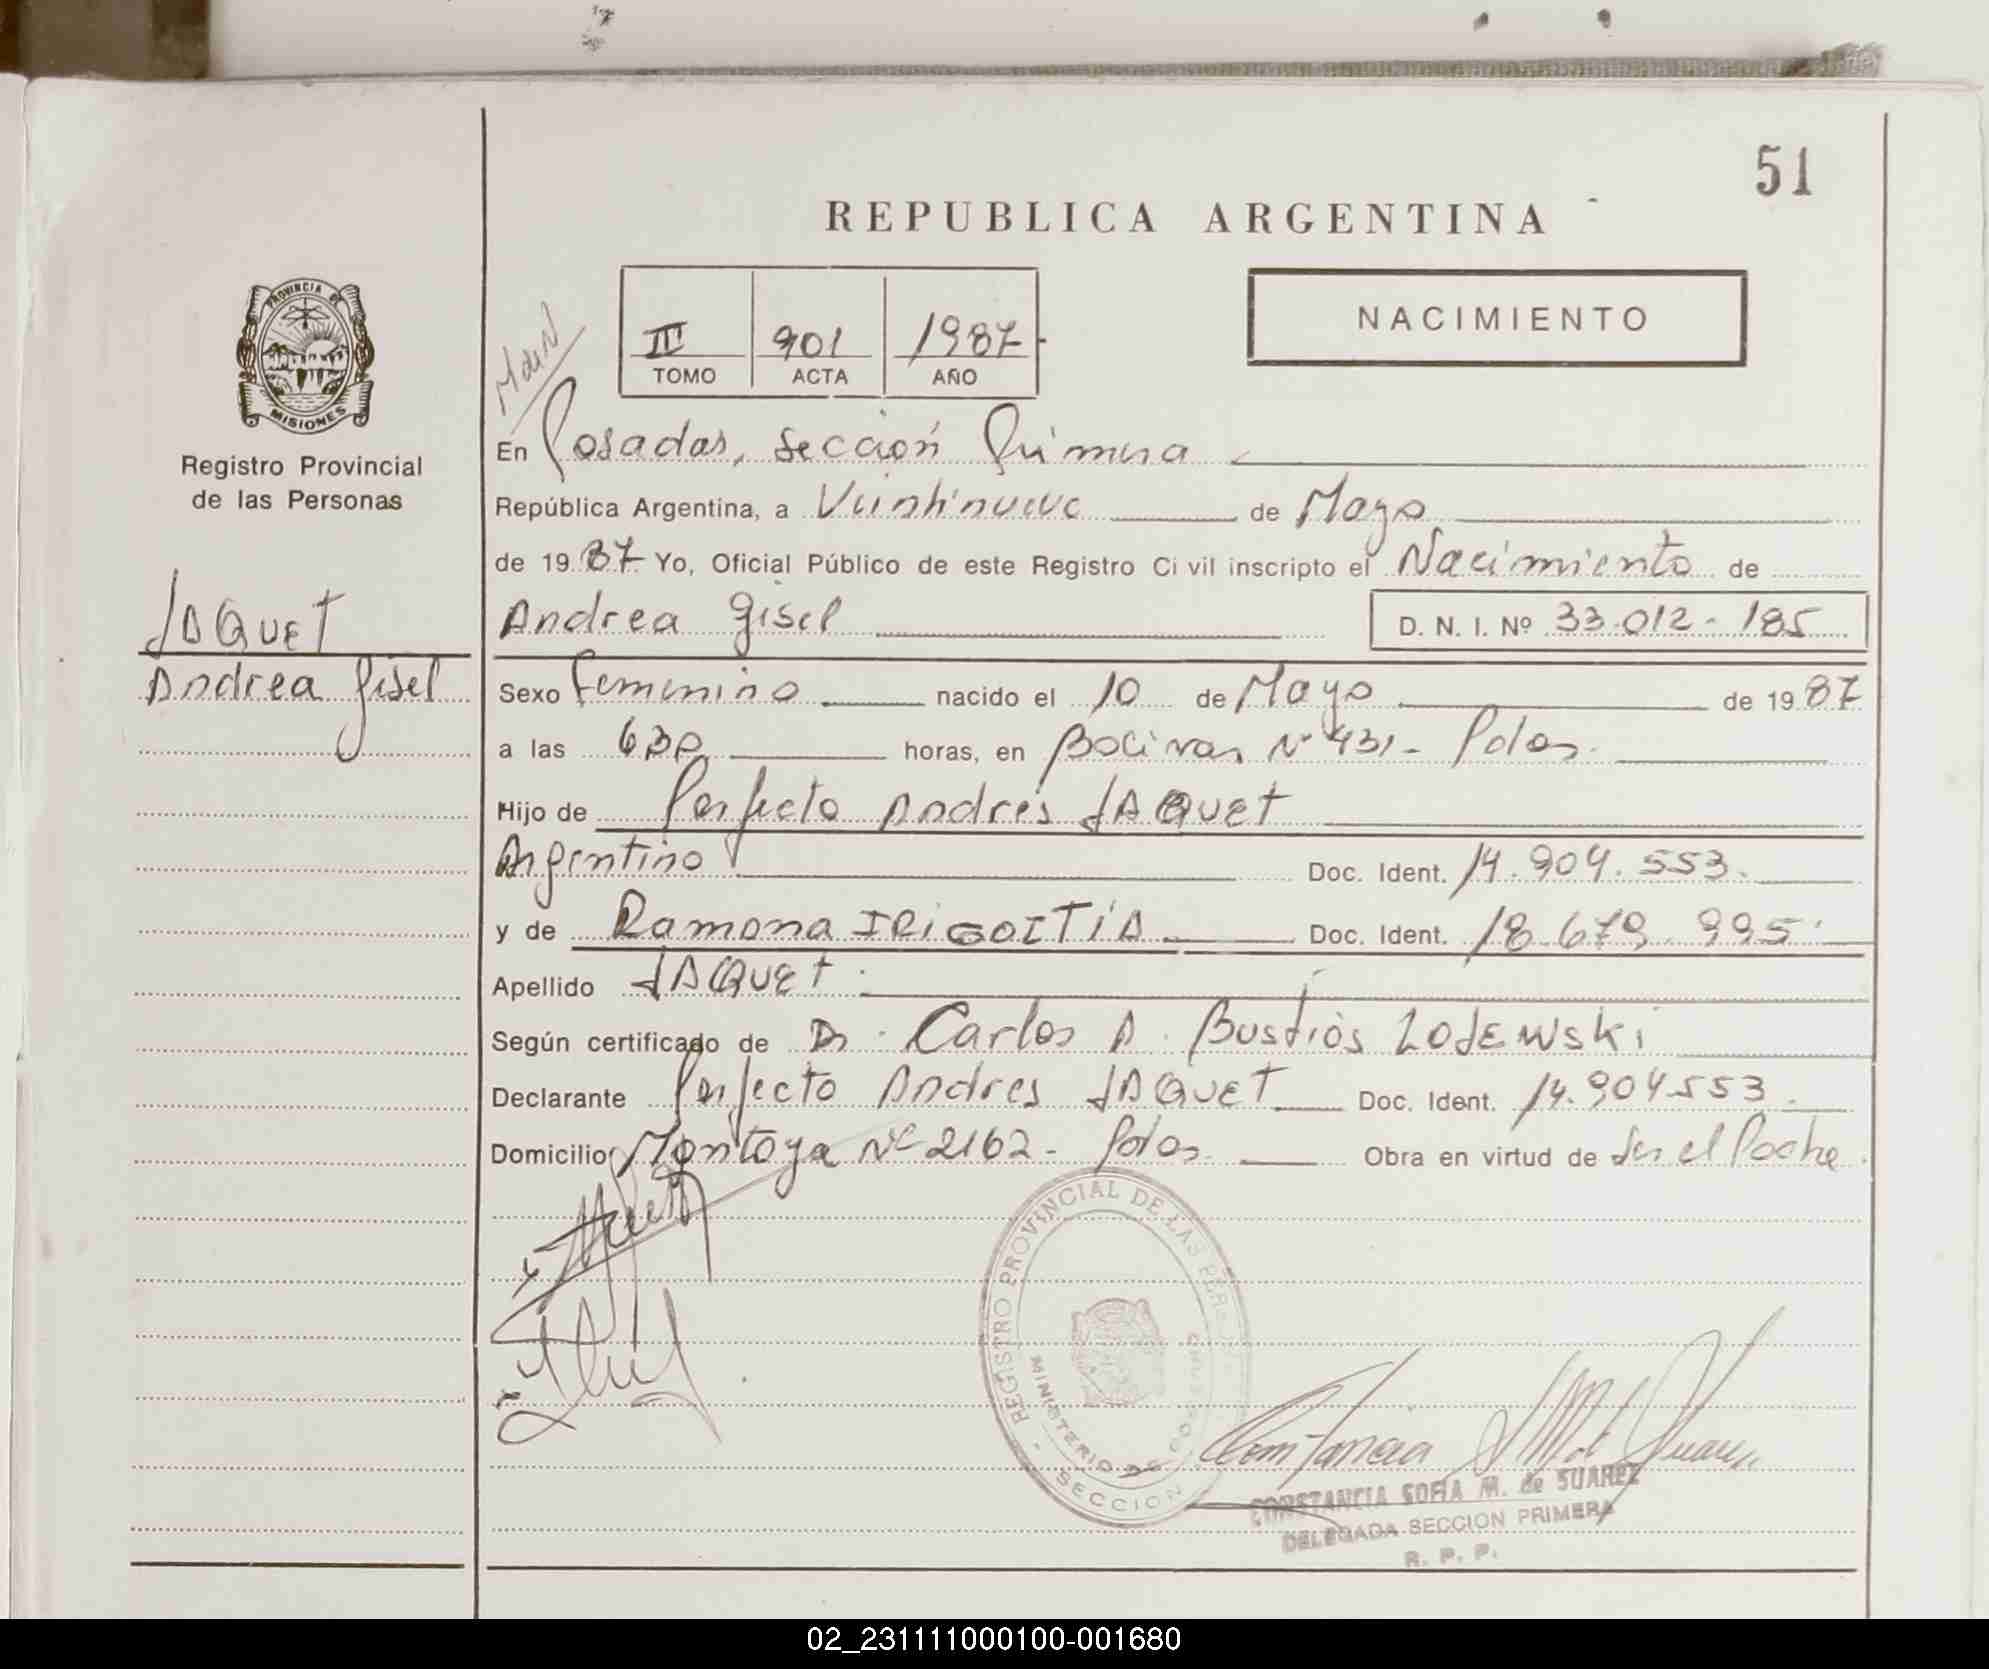 51
REPUBLICA ARGENTINA
PROVINCIA DE
MISIONES
Registro Provincial
de las Personas
III 901 1987
TOMO ACTA AÑO
NACIMIENTO
En Posadas, Sección Primera
República Argentina, a Veintinueve de Mayo
de 1987 Yo, Oficial Público de este Registro Civil inscripto el Nacimiento de
JAQUET
Andrea Gisel
Andrea Gisel D. N. I. Nº 33.012-185
Sexo Femenino nacido el 10 de Mayo de 1987
a las 630 horas, en Bolivar Nº 431- Pdas.
Hijo de Perfecto Andrés JAQUET
Argentino Doc. Ident. 14.904.553.
y de Ramona IRIGOITÍA Doc. Ident. 18.679.995
Apellido JAQUET
Según certificado de Dr. Carlos A. Bustios ZOJEWski
Declarante Perfecto Andres JAQUET Doc. Ident. 14.904553.
Domicilio Montoya Nº 2162- Pdas. Obra en virtud de Ser el Padre.
REGISTRO PROVINCIAL DE LAS
MINISTERIO DE
SECCION
CONSTANCIA SOFIA M. de SUAREZ
DELEGADA SECCION PRIMERA
R. P. P.
02_231111000100-001680